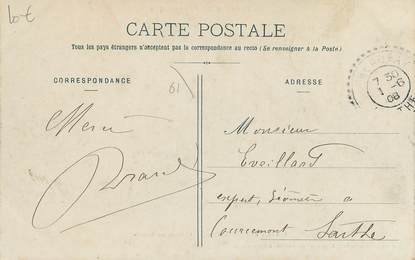 CARTE POSTALE
Tous les pays étrangers n'acceptent pas la correspondance au recto (Se renseigner à la Poste)
CORRESPONDANCE
ADRESSE
61
7 30
1 -6
08
THE
Merci
Monsieur
Eveillard
expert, Géomètre a
Courcemont Sarthe